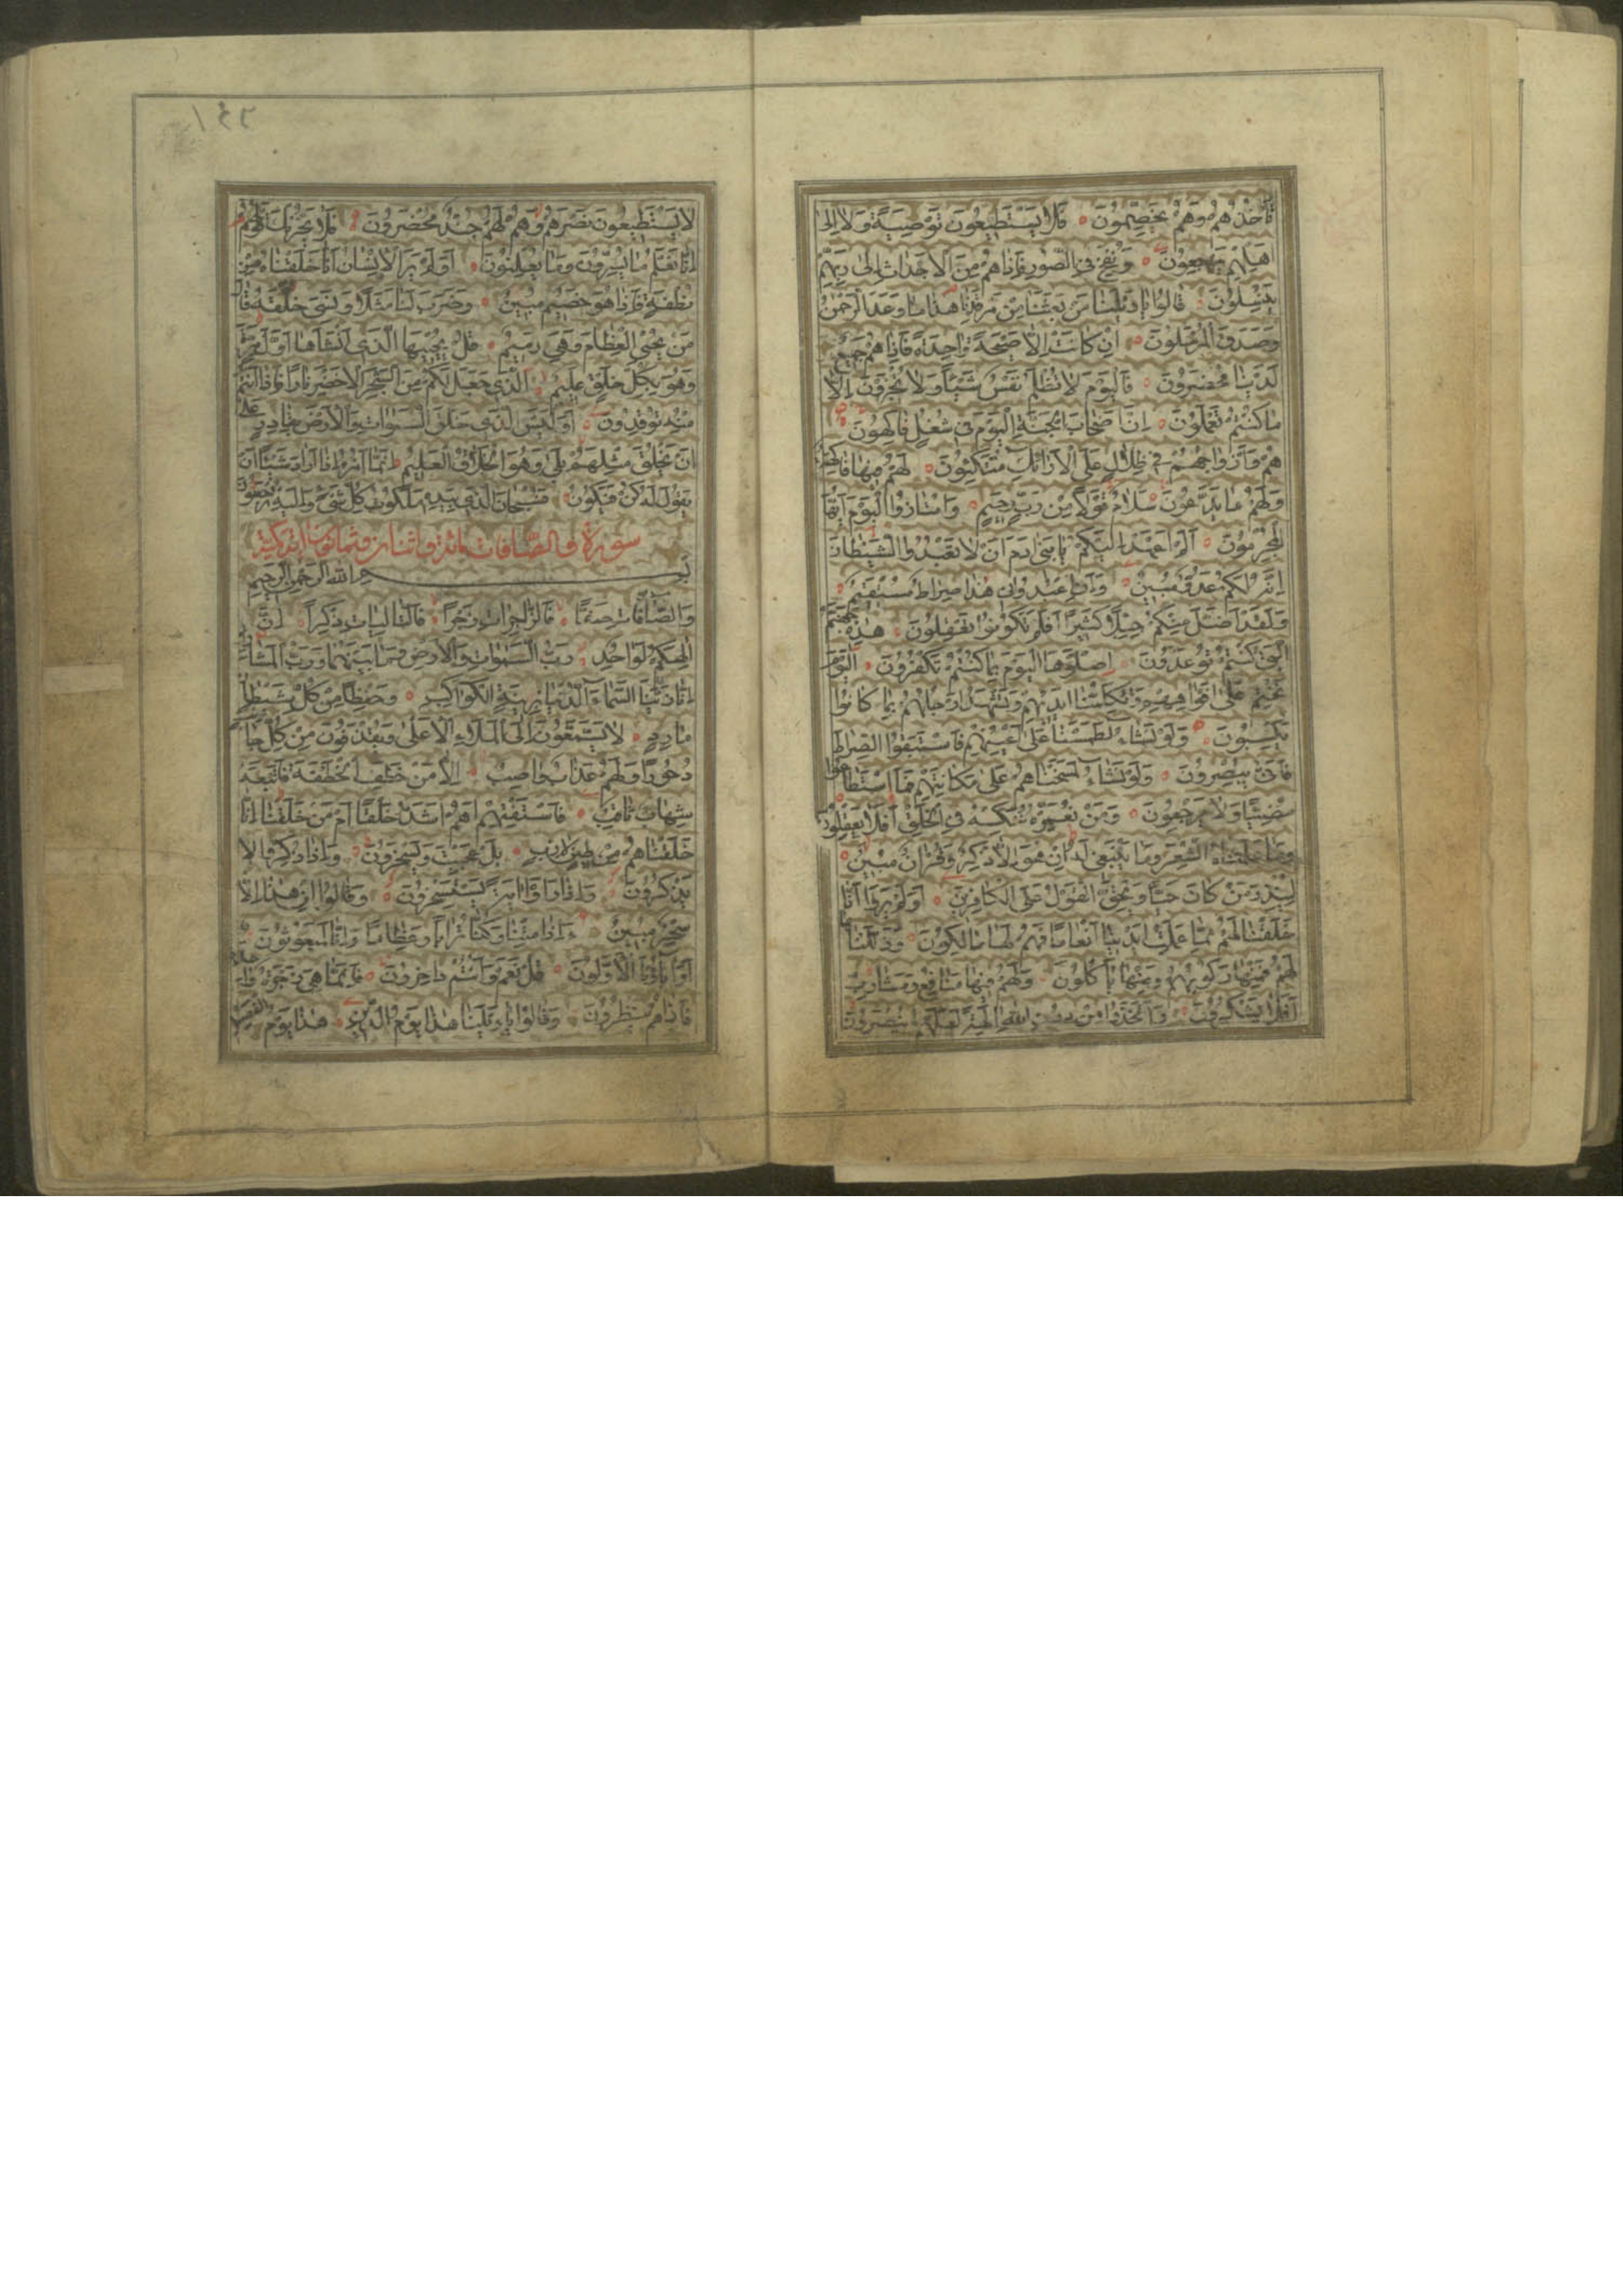 تَأْخُذُهُمْ وَهُمْ يَخِصِّمُونَ فَلَا يَسْتَطِيعُونَ تَوْصِيَةً وَلَا إِلَىٰ
أَهْلِهِمْ يَرْجِعُونَ وَنُفِخَ فِي الصُّورِ فَإِذَا هُمْ مِنَ الْأَجْدَاثِ إِلَىٰ رَبِّهِمْ
يَنْسِلُونَ قَالُوا يَا وَيْلَنَا مَنْ بَعَثَنَا مِنْ مَرْقَدِنَا هَٰذَا مَا وَعَدَ الرَّحْمَٰنُ
وَصَدَقَ الْمُرْسَلُونَ إِنْ كَانَتْ إِلَّا صَيْحَةً وَاحِدَةً فَإِذَا هُمْ جَمِيعٌ
لَدَيْنَا مُحْضَرُونَ فَالْيَوْمَ لَا تُظْلَمُ نَفْسٌ شَيْئًا وَلَا تُجْزَوْنَ إِلَّا
مَا كُنْتُمْ تَعْمَلُونَ إِنَّ أَصْحَابَ الْجَنَّةِ الْيَوْمَ فِي شُغُلٍ فَاكِهُونَ
هُمْ وَأَزْوَاجُهُمْ فِي ظِلَالٍ عَلَى الْأَرَائِكِ مُتَّكِئُونَ لَهُمْ فِيهَا فَاكِهَةٌ
وَلَهُمْ مَا يَدَّعُونَ سَلَامٌ قَوْلًا مِنْ رَبٍّ رَحِيمٍ وَامْتَازُوا الْيَوْمَ أَيُّهَا
الْمُجْرِمُونَ أَلَمْ أَعْهَدْ إِلَيْكُمْ يَا بَنِي آدَمَ أَنْ لَا تَعْبُدُوا الشَّيْطَانَ
إِنَّهُ لَكُمْ عَدُوٌّ مُبِينٌ وَأَنِ اعْبُدُونِي هَٰذَا صِرَاطٌ مُسْتَقِيمٌ
وَلَقَدْ أَضَلَّ مِنْكُمْ جِبِلًّا كَثِيرًا أَفَلَمْ تَكُونُوا تَعْقِلُونَ هَٰذِهِ جَهَنَّمُ
الَّتِي كُنْتُمْ تُوعَدُونَ اصْلَوْهَا الْيَوْمَ بِمَا كُنْتُمْ تَكْفُرُونَ الْيَوْمَ
نَخْتِمُ عَلَىٰ أَفْوَاهِهِمْ وَتُكَلِّمُنَا أَيْدِيهِمْ وَتَشْهَدُ أَرْجُلُهُمْ بِمَا كَانُوا
يَكْسِبُونَ وَلَوْ نَشَاءُ لَطَمَسْنَا عَلَىٰ أَعْيُنِهِمْ فَاسْتَبَقُوا الصِّرَاطَ
فَأَنَّىٰ يُبْصِرُونَ وَلَوْ نَشَاءُ لَمَسَخْنَاهُمْ عَلَىٰ مَكَانَتِهِمْ فَمَا اسْتَطَاعُوا
مُضِيًّا وَلَا يَرْجِعُونَ وَمَنْ نُعَمِّرْهُ نُنَكِّسْهُ فِي الْخَلْقِ أَفَلَا يَعْقِلُونَ
وَمَا عَلَّمْنَاهُ الشِّعْرَ وَمَا يَنْبَغِي لَهُ إِنْ هُوَ إِلَّا ذِكْرٌ وَقُرْآنٌ مُبِينٌ
لِيُنْذِرَ مَنْ كَانَ حَيًّا وَيَحِقَّ الْقَوْلُ عَلَى الْكَافِرِينَ أَوَلَمْ يَرَوْا أَنَّا
خَلَقْنَا لَهُمْ مِمَّا عَمِلَتْ أَيْدِينَا أَنْعَامًا فَهُمْ لَهَا مَالِكُونَ وَذَلَّلْنَاهَا
لَهُمْ فَمِنْهَا رَكُوبُهُمْ وَمِنْهَا يَأْكُلُونَ وَلَهُمْ فِيهَا مَنَافِعُ وَمَشَارِبُ
أَفَلَا يَشْكُرُونَ وَاتَّخَذُوا مِنْ دُونِ اللَّهِ آلِهَةً لَعَلَّهُمْ يُنْصَرُونَ
١٤٢
لَا يَسْتَطِيعُونَ نَصْرَهُمْ وَهُمْ لَهُمْ جُنْدٌ مُحْضَرُونَ فَلَا يَحْزُنْكَ قَوْلُهُمْ
إِنَّا نَعْلَمُ مَا يُسِرُّونَ وَمَا يُعْلِنُونَ أَوَلَمْ يَرَ الْإِنْسَانُ أَنَّا خَلَقْنَاهُ مِنْ
نُطْفَةٍ فَإِذَا هُوَ خَصِيمٌ مُبِينٌ وَضَرَبَ لَنَا مَثَلًا وَنَسِيَ خَلْقَهُ قَالَ
مَنْ يُحْيِي الْعِظَامَ وَهِيَ رَمِيمٌ قُلْ يُحْيِيهَا الَّذِي أَنْشَأَهَا أَوَّلَ مَرَّةٍ
وَهُوَ بِكُلِّ خَلْقٍ عَلِيمٌ الَّذِي جَعَلَ لَكُمْ مِنَ الشَّجَرِ الْأَخْضَرِ نَارًا فَإِذَا أَنْتُمْ
مِنْهُ تُوقِدُونَ أَوَلَيْسَ الَّذِي خَلَقَ السَّمَاوَاتِ وَالْأَرْضَ بِقَادِرٍ عَلَىٰ
أَنْ يَخْلُقَ مِثْلَهُمْ بَلَىٰ وَهُوَ الْخَلَّاقُ الْعَلِيمُ إِنَّمَا أَمْرُهُ إِذَا أَرَادَ شَيْئًا أَنْ
يَقُولَ لَهُ كُنْ فَيَكُونُ فَسُبْحَانَ الَّذِي بِيَدِهِ مَلَكُوتُ كُلِّ شَيْءٍ وَإِلَيْهِ تُرْجَعُونَ
سورة والصافات مائة واثنان وثمانون آية مكية
بِسْمِ اللَّهِ الرَّحْمَٰنِ الرَّحِيمِ
وَالصَّافَّاتِ صَفًّا فَالزَّاجِرَاتِ زَجْرًا فَالتَّالِيَاتِ ذِكْرًا إِنَّ
إِلَٰهَكُمْ لَوَاحِدٌ رَبُّ السَّمَاوَاتِ وَالْأَرْضِ وَمَا بَيْنَهُمَا وَرَبُّ الْمَشَارِقِ
إِنَّا زَيَّنَّا السَّمَاءَ الدُّنْيَا بِزِينَةٍ الْكَوَاكِبِ وَحِفْظًا مِنْ كُلِّ شَيْطَانٍ
مَارِدٍ لَا يَسَّمَّعُونَ إِلَى الْمَلَإِ الْأَعْلَىٰ وَيُقْذَفُونَ مِنْ كُلِّ جَانِبٍ
دُحُورًا وَلَهُمْ عَذَابٌ وَاصِبٌ إِلَّا مَنْ خَطِفَ الْخَطْفَةَ فَأَتْبَعَهُ
شِهَابٌ ثَاقِبٌ فَاسْتَفْتِهِمْ أَهُمْ أَشَدُّ خَلْقًا أَمْ مَنْ خَلَقْنَا إِنَّا
خَلَقْنَاهُمْ مِنْ طِينٍ لَازِبٍ بَلْ عَجِبْتَ وَيَسْخَرُونَ وَإِذَا ذُكِّرُوا لَا
يَذْكُرُونَ وَإِذَا رَأَوْا آيَةً يَسْتَسْخِرُونَ وَقَالُوا إِنْ هَٰذَا إِلَّا
سِحْرٌ مُبِينٌ ءَإِذَا مِتْنَا وَكُنَّا تُرَابًا وَعِظَامًا ءَإِنَّا لَمَبْعُوثُونَ
أَوَآبَاؤُنَا الْأَوَّلُونَ قُلْ نَعَمْ وَأَنْتُمْ دَاخِرُونَ فَإِنَّمَا هِيَ زَجْرَةٌ وَاحِدَةٌ
فَإِذَا هُمْ يَنْظُرُونَ وَقَالُوا يَا وَيْلَنَا هَٰذَا يَوْمُ الدِّينِ هَٰذَا يَوْمُ الْفَصْلِ